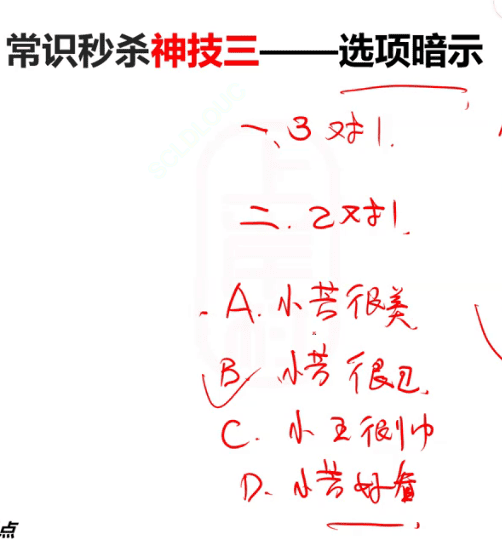 常识秒杀神技三——选项暗示
一、3对1.
二.2对1.
A.小芳很美
B.小芳很丑
C.小王很帅
D.小芳好看
点